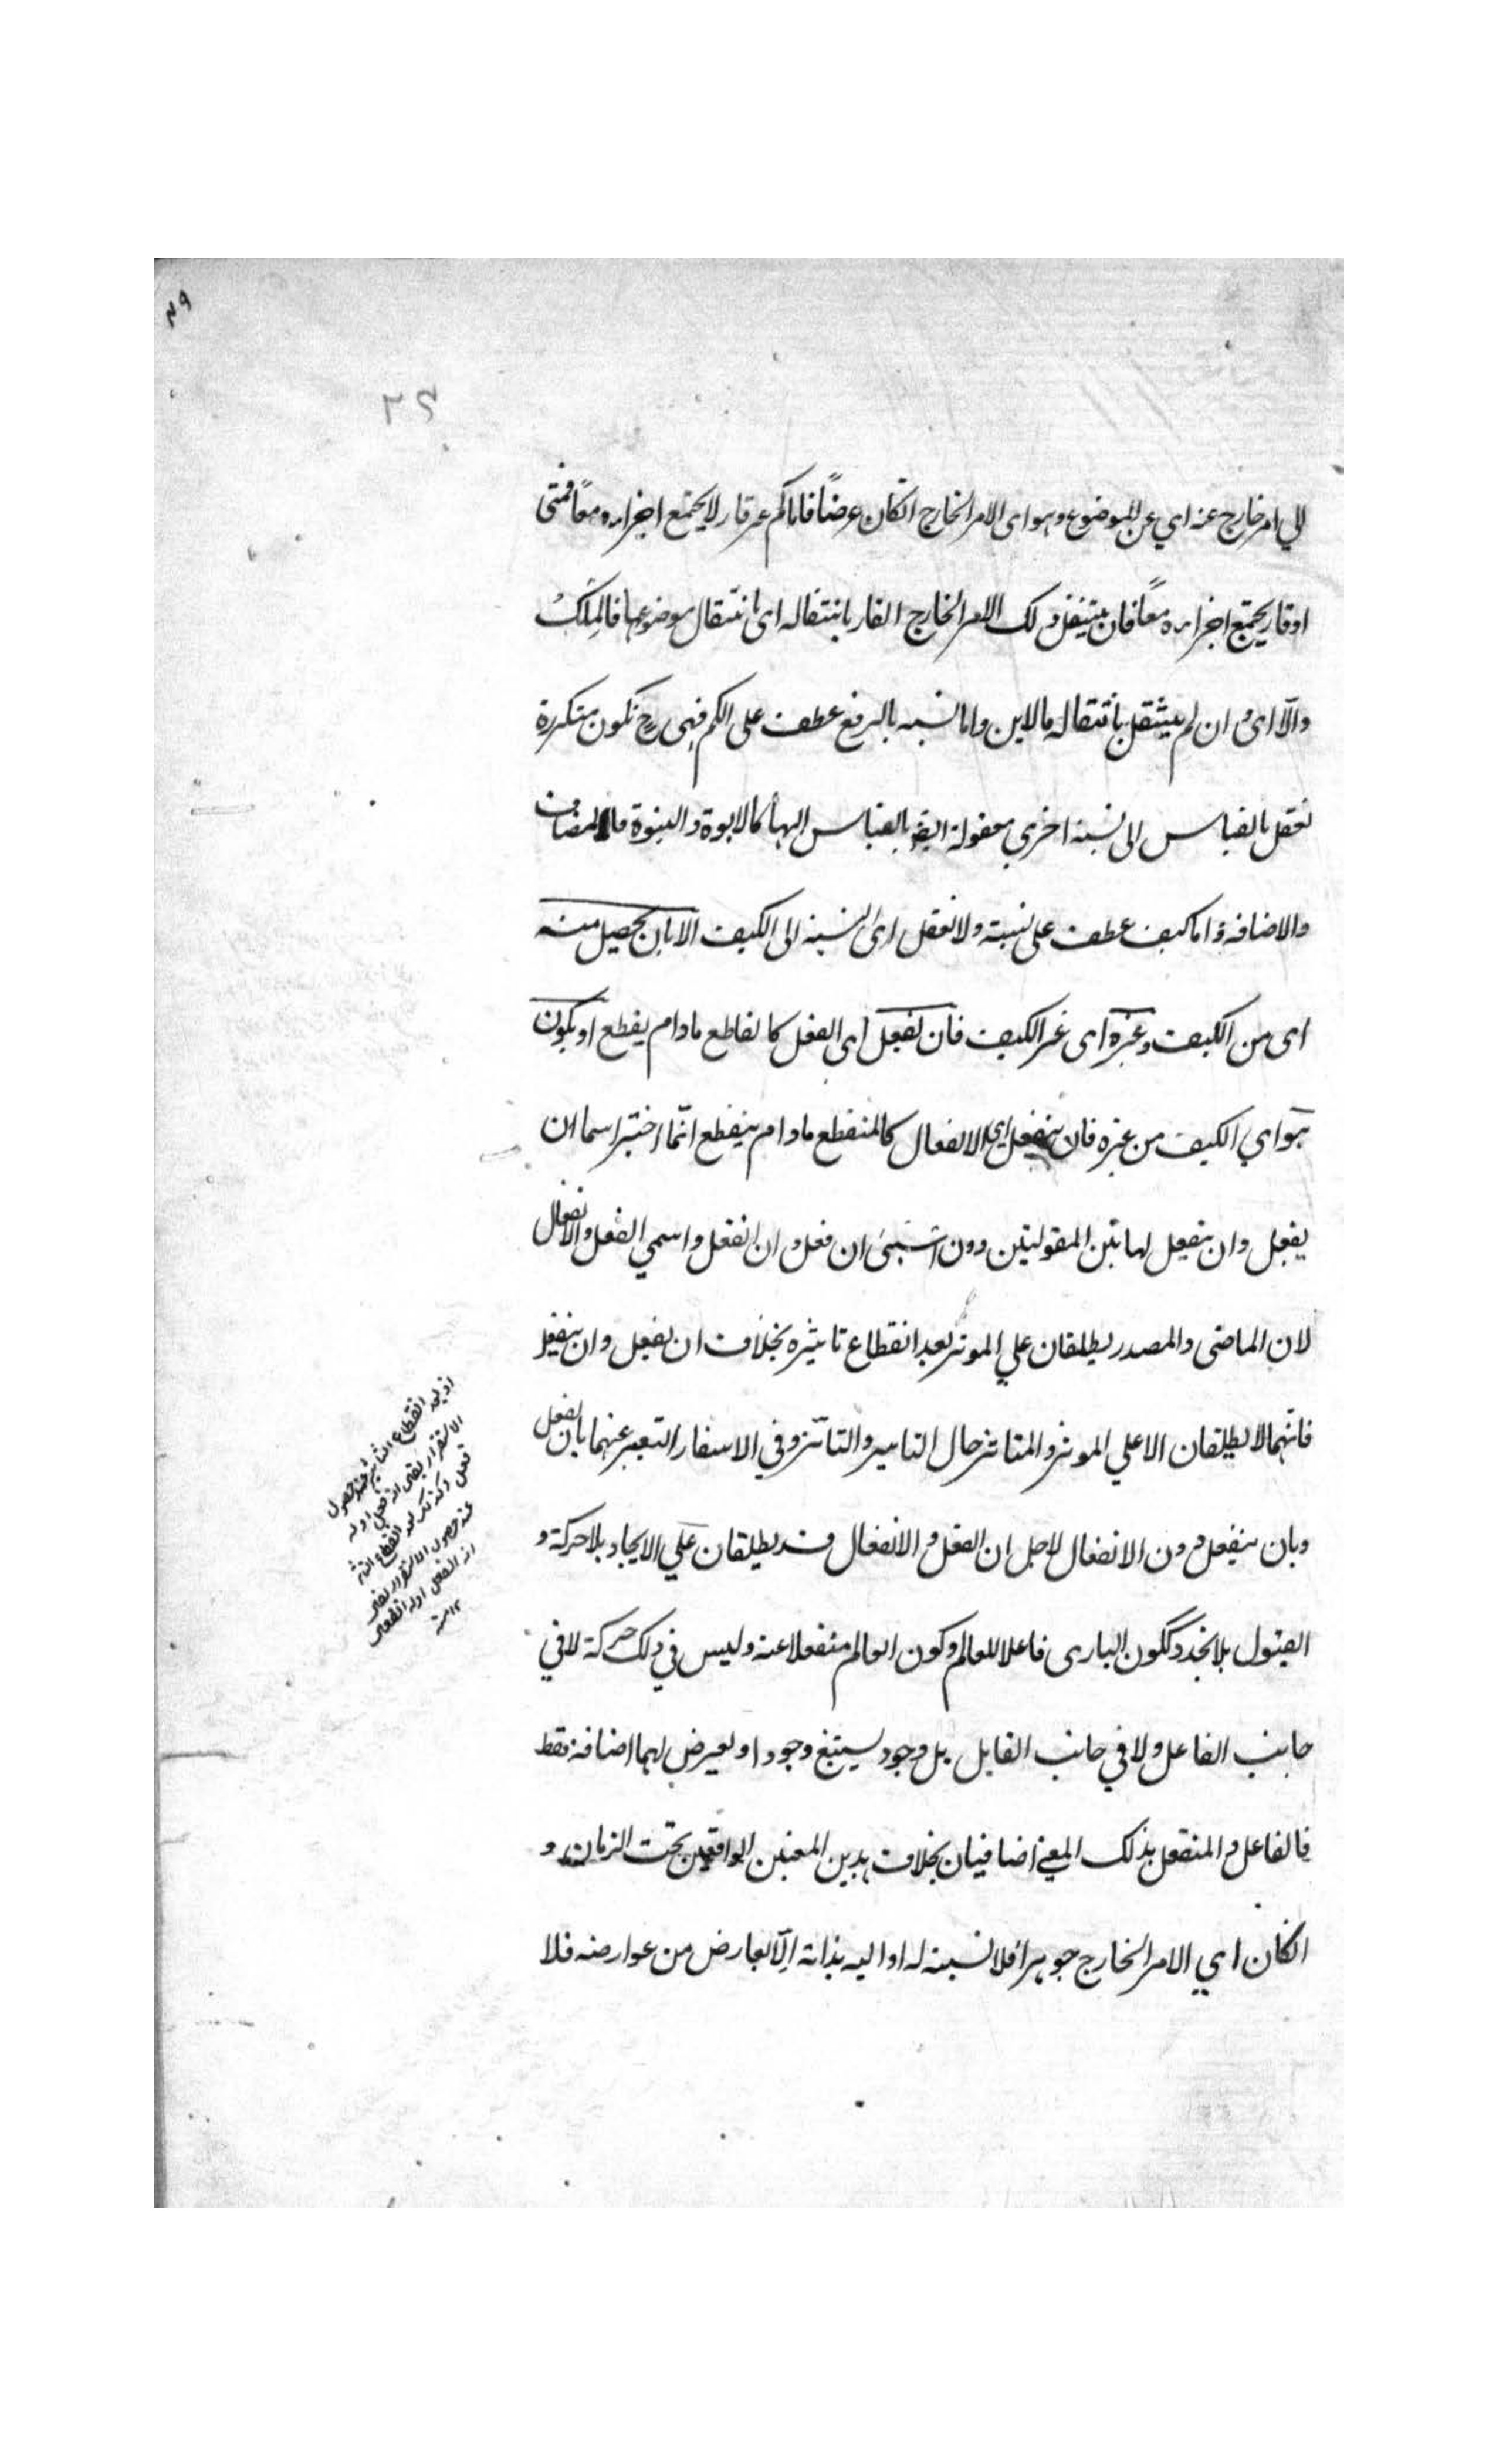 ٤٩
٢٤
الي امر خارج عنه اي عن الموضوع وهو اي الامر الخارج انكان عرضًا فاما كم غير قار لا يجتمع اجزاءه معًا فمتى
او قار يجتمع اجزاءه معًا فان ينتقل ذلك الامر الخارج القار بانتقاله اى بانتقال موضوعها فالملك
والّا اى وان لم ينتقل بانتقاله فالاين واما نسبه بالرفع عطف على الكم فهى ح تكون متكررة
تعقل بالقياس الى نسبة اخرى معقولة ايضا بالقياس اليها كالابوة والبنوة فالمضاف
والاضافه واما كيف عطف على نسبته ولا تعقل اى النسبة الى الكيف الا بان يحصل منه
اى من الكيف وغيره اى غير الكيف فان يفعل اى الفعل كالقاطع مادام يقطع او يكون
هو اي الكيف من غيره فان ينفعل اي الانفعال كالمنقطع مادام ينقطع انّما اختير اسما ان
يفعل وان ينفعل لهاتين المقولتين دون ان فعل وان انفعل واسمي الفعل والانفعال
لان الماضى والمصدر يطلقان علي الموثر بعد انقطاع تاثيره بخلاف ان يفعل وان ينفعل
فانّهما لا يطلقان الا علي الموثر والمتاثر حال التاثير والتاثر وفي الاسفار التعبير عنهما بان يفعل
وبان ينفعل دون الانفعال لاجل ان الفعل والانفعال قد يطلقان علي الايجاد بلا حركة و
القبول بلا تجدد ككون البارى فاعلا للعالم وكون العالم منفعلا عنه وليس في ذلك حركة لا في
جانب الفاعل ولا في جانب القابل بل وجود يستتبع وجودا ويعرض لهما اضافة فقط
فالفاعل والمنفعل بذلك المعني اضافيان بخلاف هذين المعنين الواقعين تحت الزمان و
انكان اي الامر الخارج جوهرا فلا نسبة له او اليه بذاته الّا بعارض من عوارضه فلا
اذ بعد انقطاع التاثير عند حصول
الاستقرار يقال انه فعل او له
فعل وكذلك بعد انقطاع التاثر
عند حصول الاستقرار يقال
انه انفعل او له انفعال
١٢ منه